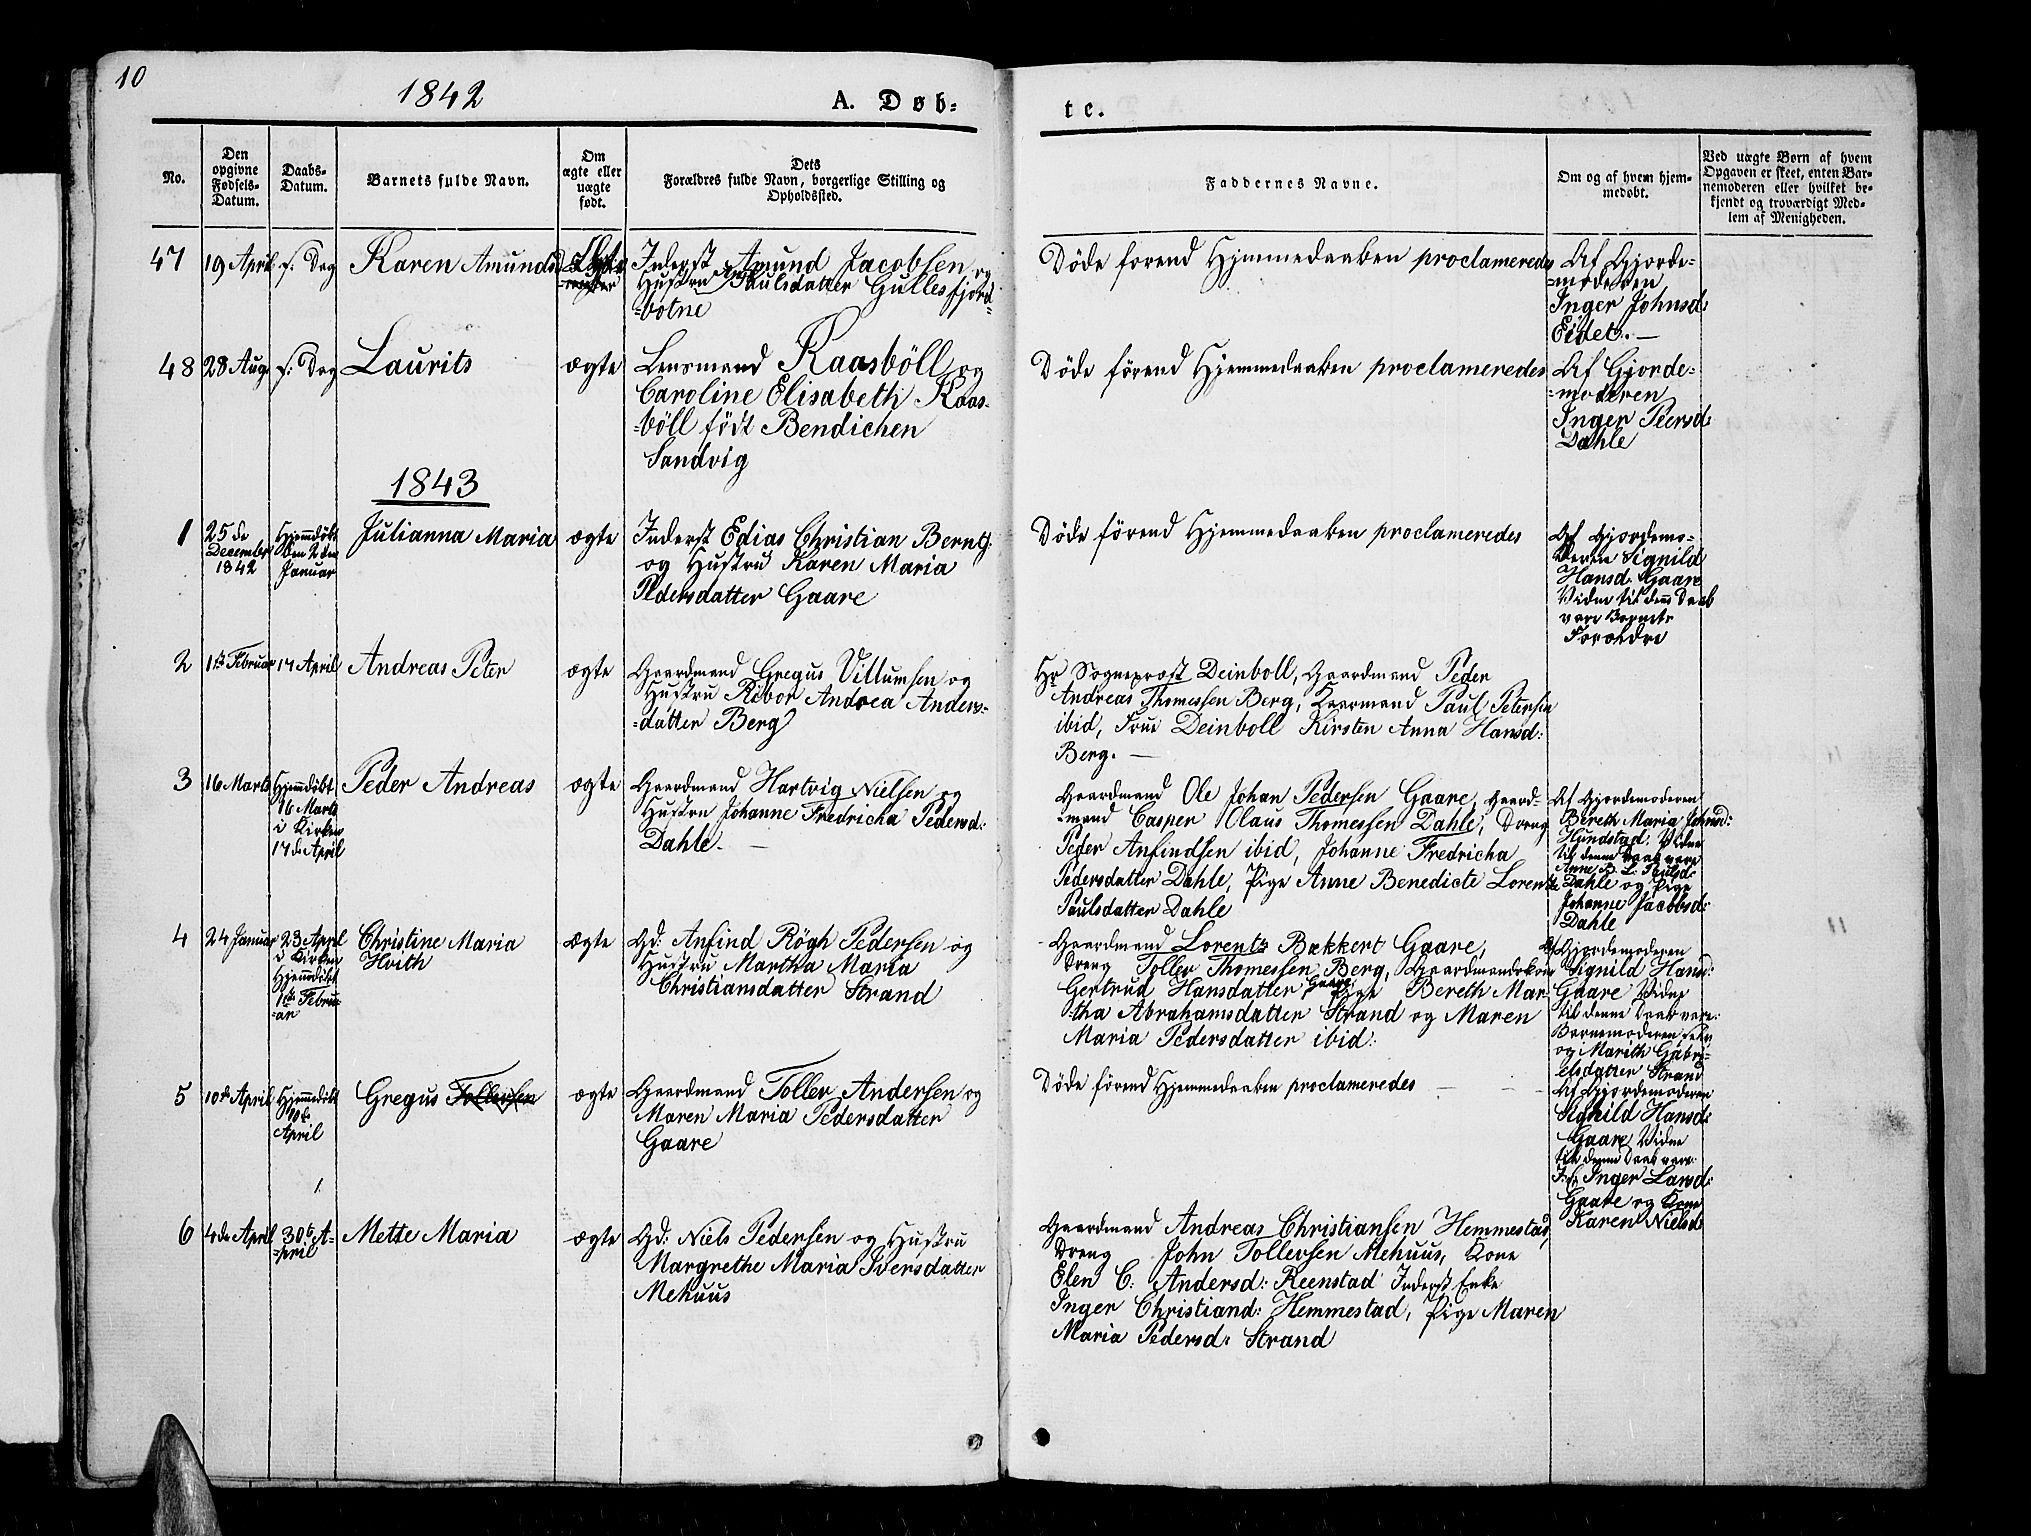 10
1842
A. Døb=
te.
No.
Den
opgivne
Fødsels-
Datum.
Daabs-
Datum.
Barnets fulde Navn.
Om
ægte eller
uægte
født.
Dets
Forældres fulde Navn, borgerlige Stilling og
Opholdssted.
Faddernes Navne.
Om og af hvem hjem-
medøbt.
Ved uægte Børn af hvem
Opgaven er skeet, enten Bar-
nemoderen eller hvilket be-
kjendt og troværdigt Med-
lem af Menigheden.
47
19 April
s: Dag
Karen Amunds
Inderst Amund Jacobsen og
Hustru Paulsdatter Gullesfjord-
-botne
Døde førend Hjemmedaaben proclameredes
Af Gjorde-
-moderen
Inger Johnsd:
Eidet.-
48
28 Aug
s: Dag
Laurits
ægte
Lensmand Raasböll og
Caroline Elisabeth Raas-
-böll födt Bendichen
Sandvig
Døde førend Hjemmedaaben proclameredes
Af Gjorde-
-moderen
Inger Peersd:
Dahle
1843
1
25de
December
1842
Hjemmdöbt
den 2den
Januar
Julianna Maria
ægte
Inderst Edias Christian Bernts:
og Hustru Karen Maria
Pedersdatter Gaare
Døde førend Hjemmedaaben proclameredes
Af Gjordemo-
deren Signild
Hansd: Gaare
Vidne til denne Daab
vare Barnets
Forældre
2
1ste Februar
17 April
Andreas Peter
ægte
Gaardmand Gregus Villumsen og
Hustru Ribor Andrea Anders-
-datter Berg
Hr Sogneprost Deinboll, Gaardmand Peder
Andreas Thomessen Berg, Gaarmand Paul Petersen
ibid, Frue Deinboll Kirsten Anna Hansd:
Berg. -
3
16 Marts
Hjemmdöbt
16 Marts
i Kirken
17de April
Peder Andreas
ægte
Gaardmand Hartvig Nielsen og
Hustru Johanne Fredricha Pedersd:
Dahle. -
Gaardmand Ole Johan Pedersen Gaare, Gaard-
-mand Casper Olaus Thomessen Dahle, Dreng
Peder Anfindsen ibid, Johanne Fredricha
Pedersdatter Dahle, Pige Anne Benedicte Lorentze
Paulsdatter Dahle
Af Gjordemoderen
Bereth Maria Johnsd:
Hundstad. Vidne
til denne Daab vare
Anne B. L. Paulsd:
Dahle og Pige
Johanne Jacobsd:
Dahle
4
24 Januar
23 April
i Kirken
Hjemmdöbt
1ste Febru-
-ar
Christine Maria
Hvith
ægte
Gd: Anfind Rögh Pedersen og
Hustru Martha Maria
Christiansdatter Strand
Gaardmand Lorentz Bækkert Gaare,
Dreng Toller Thomessen Berg, Gaardmandskone
Gertrud Hansdatter Gaare, Pige Bereth Mar-
-tha Abrahamsdatter Strand og Maren
Maria Pedersdatter ibid:
Af Gjordemoderen
Signild Hansd:
Gaare Vidne
til denne Daab vare:
Barnemoderen selv
og Marith Gabri-
elsdatter Strand
5
10de April
Hjemmedöbt
10de
April
Gregus Tollersen
ægte
Gaardmand Toller Andersen og
Maren Maria Pedersdatter
Gaare
Døde førend Hjemmedaaben proclameredes
Af Gjordemoderen
Signild Hansd:
Gaare Vidne
til denne Daab vare:
Inger Larsd:
Gaare og Kone
Karen Nielsd:
6
4de April
30te A-
-pril
Mette Maria
ægte
Gd: Niels Pedersen og Hustru
Margrethe Maria Iversdatter
Mehuus
Gaardmand Andreas Christiansen Hemmestad,
Dreng John Tollevsen Mehuus, Kone
Elen C: Andersd: Reenstad Inderst Enke
Inger Christiand: Hemmestad, Pige Maren
Maria Pedersd: Strand